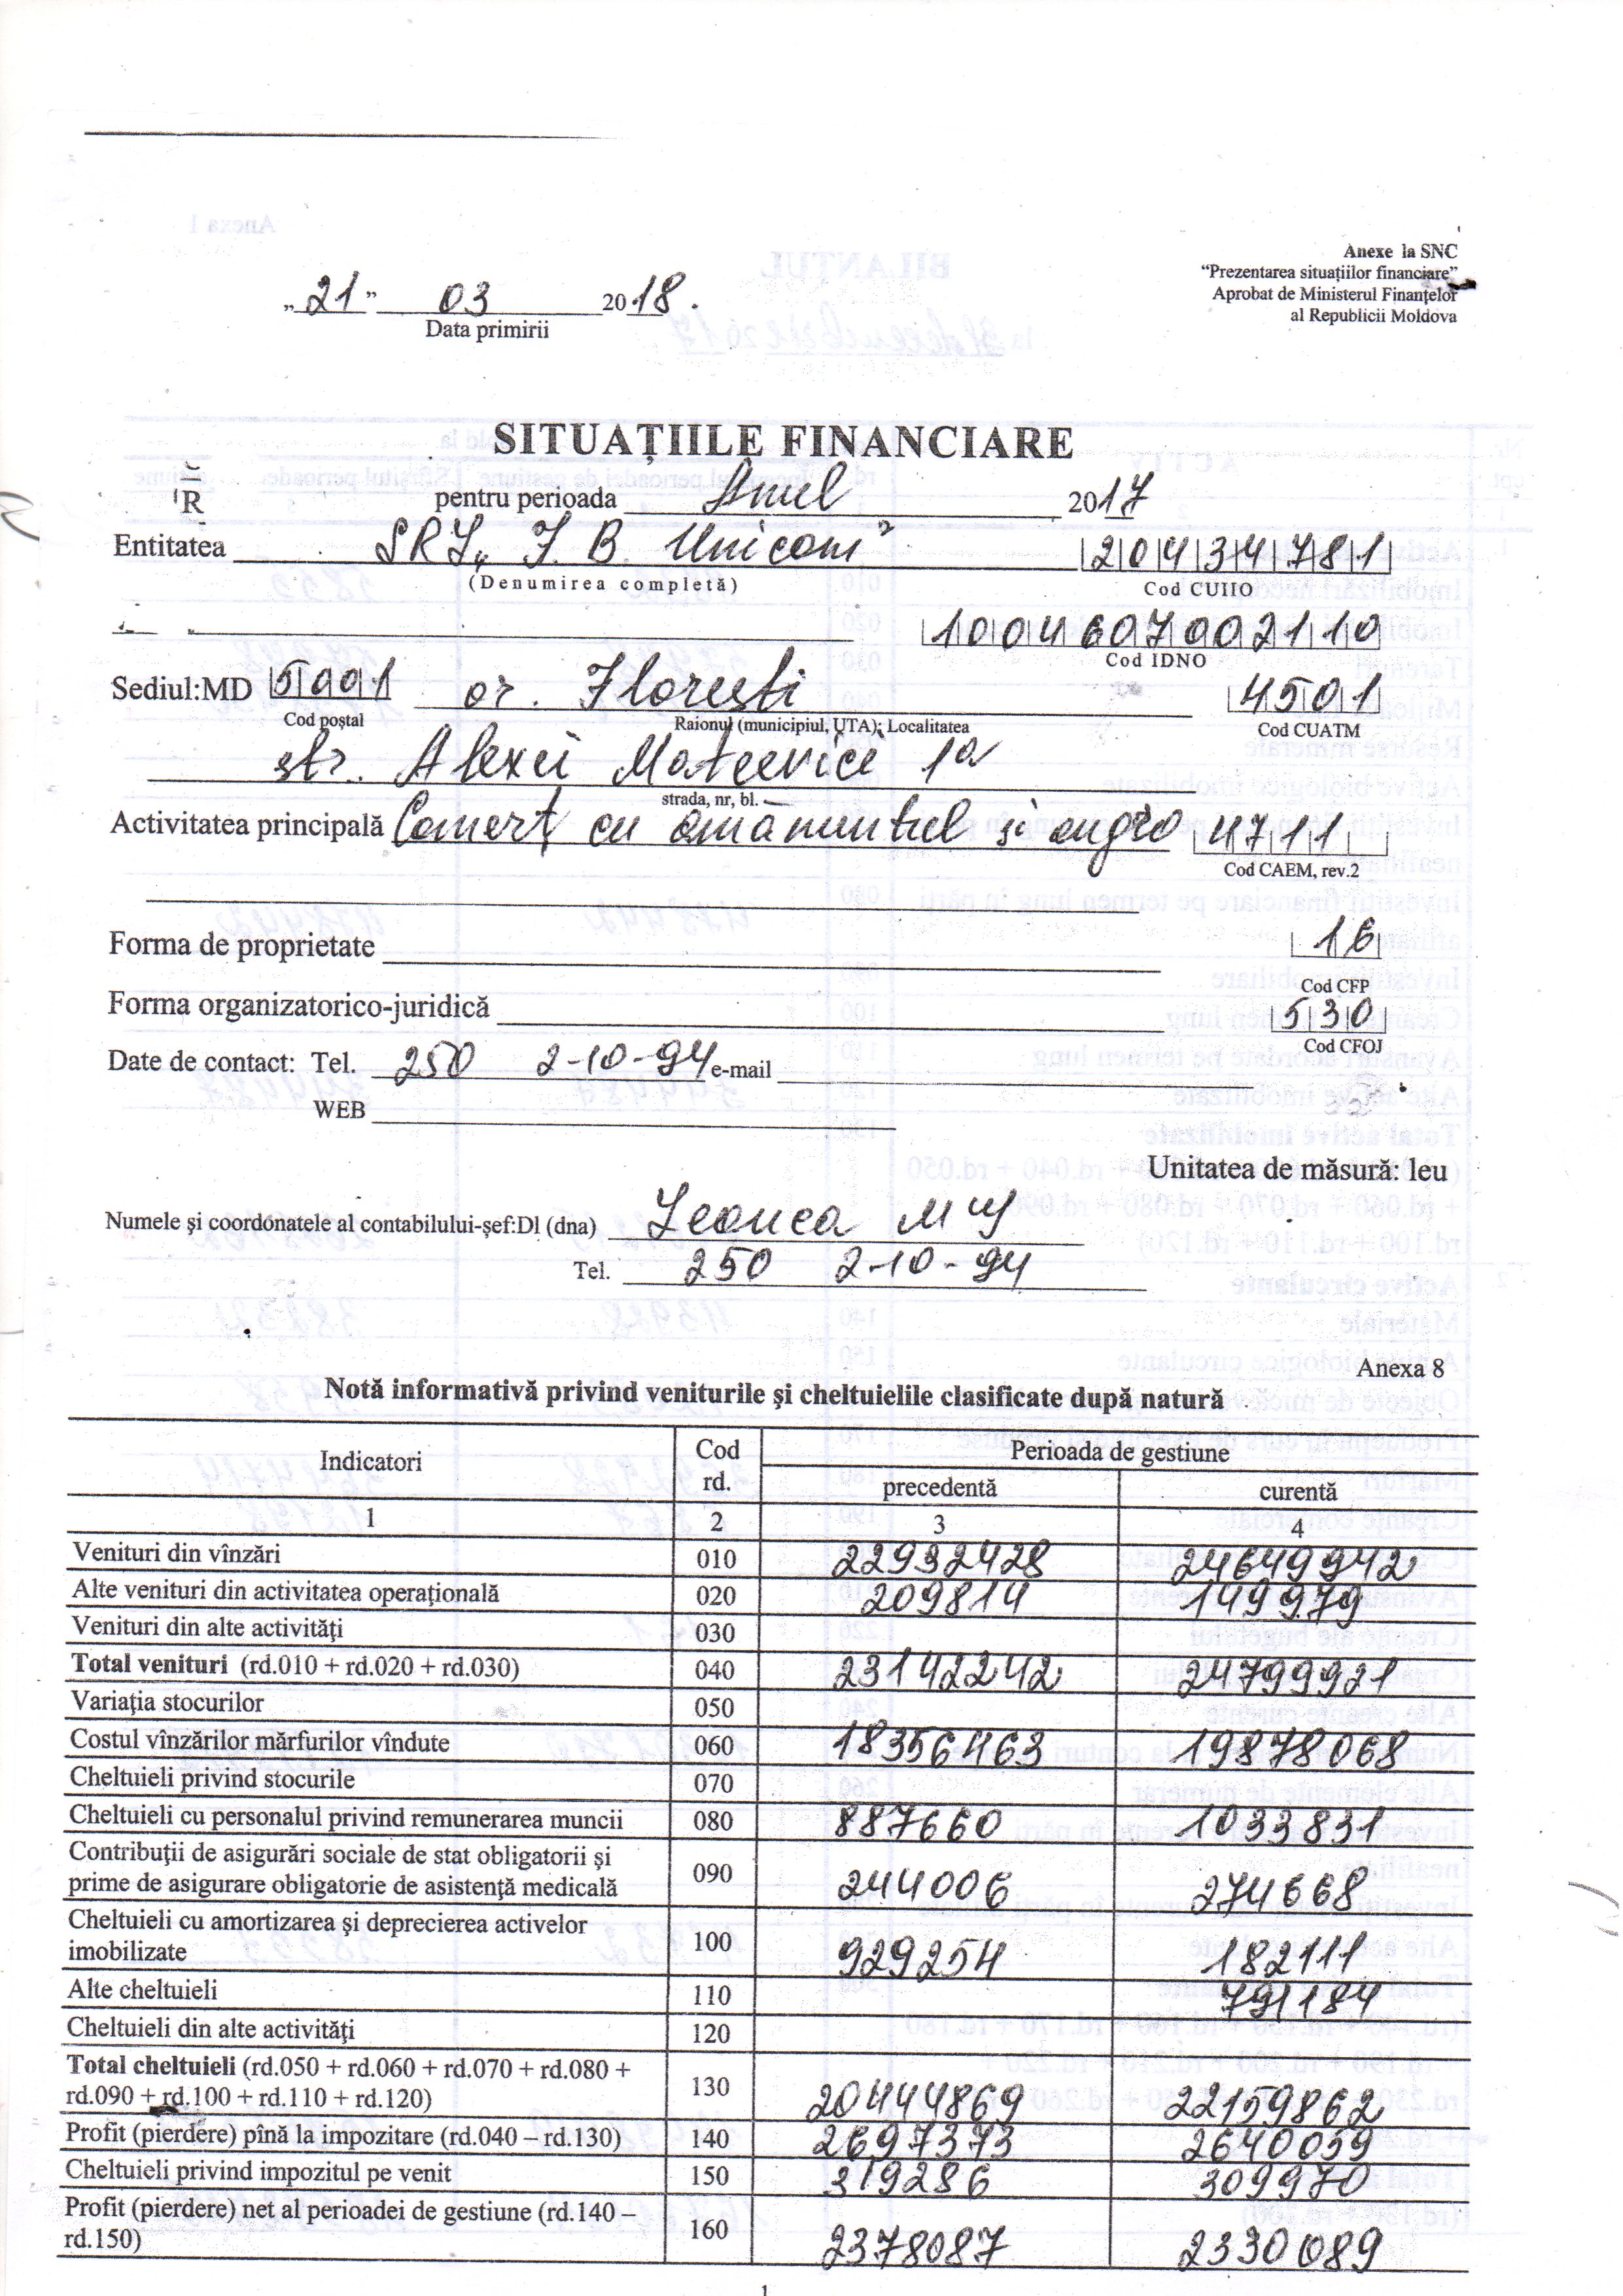 Anexe la SNC
“Prezentarea situațiilor financiare”
Aprobat de Ministerul Finanțelor
al Republicii Moldova
„21” 03 2018.
Data primirii
SITUAȚIILE FINANCIARE
pentru perioada Anul 2017
Entitatea SRL „F. B. Unicom” 20434781
(Denumirea completă) Cod CUIIO
1004607002110
Cod IDNO
Sediul:MD 5001 or. Floresti 4501
Cod poştal Raionul (municipiul, UTA); Localitatea Cod CUATM
str. Alexei Mateevici 1a
strada, nr, bl.
Activitatea principală Comerț cu amanuntul și angro 4711
Cod CAEM, rev.2
Forma de proprietate 16
Cod CFP
Forma organizatorico-juridică 530
Cod CFOJ
Date de contact: Tel. 250 2-10-94 e-mail
WEB
Unitatea de măsură: leu
Numele şi coordonatele al contabilului-șef:Dl (dna)
Tel. 250 2-10-94
Anexa 8
Notă informativă privind veniturile şi cheltuielile clasificate după natură
Indicatori Cod rd. Perioada de gestiune
precedentă curentă
1 2 3 4
Venituri din vînzări 010 22932428 24649942
Alte venituri din activitatea operaţională 020 209814 149979
Venituri din alte activităţi 030
Total venituri (rd.010 + rd.020 + rd.030) 040 23142242 24799921
Variaţia stocurilor 050
Costul vînzărilor mărfurilor vîndute 060 18356463 19878068
Cheltuieli privind stocurile 070
Cheltuieli cu personalul privind remunerarea muncii 080 887660 1033831
Contribuţii de asigurări sociale de stat obligatorii şi
prime de asigurare obligatorie de asistenţă medicală 090 244006 274668
Cheltuieli cu amortizarea şi deprecierea activelor
imobilizate 100 929254 182111
Alte cheltuieli 110 791184
Cheltuieli din alte activităţi 120
Total cheltuieli (rd.050 + rd.060 + rd.070 + rd.080 +
rd.090 + rd.100 + rd.110 + rd.120) 130 20444869 22159862
Profit (pierdere) pînă la impozitare (rd.040 – rd.130) 140 2697373 2640059
Cheltuieli privind impozitul pe venit 150 319286 309970
Profit (pierdere) net al perioadei de gestiune (rd.140 –
rd.150) 160 2378087 2330089
1